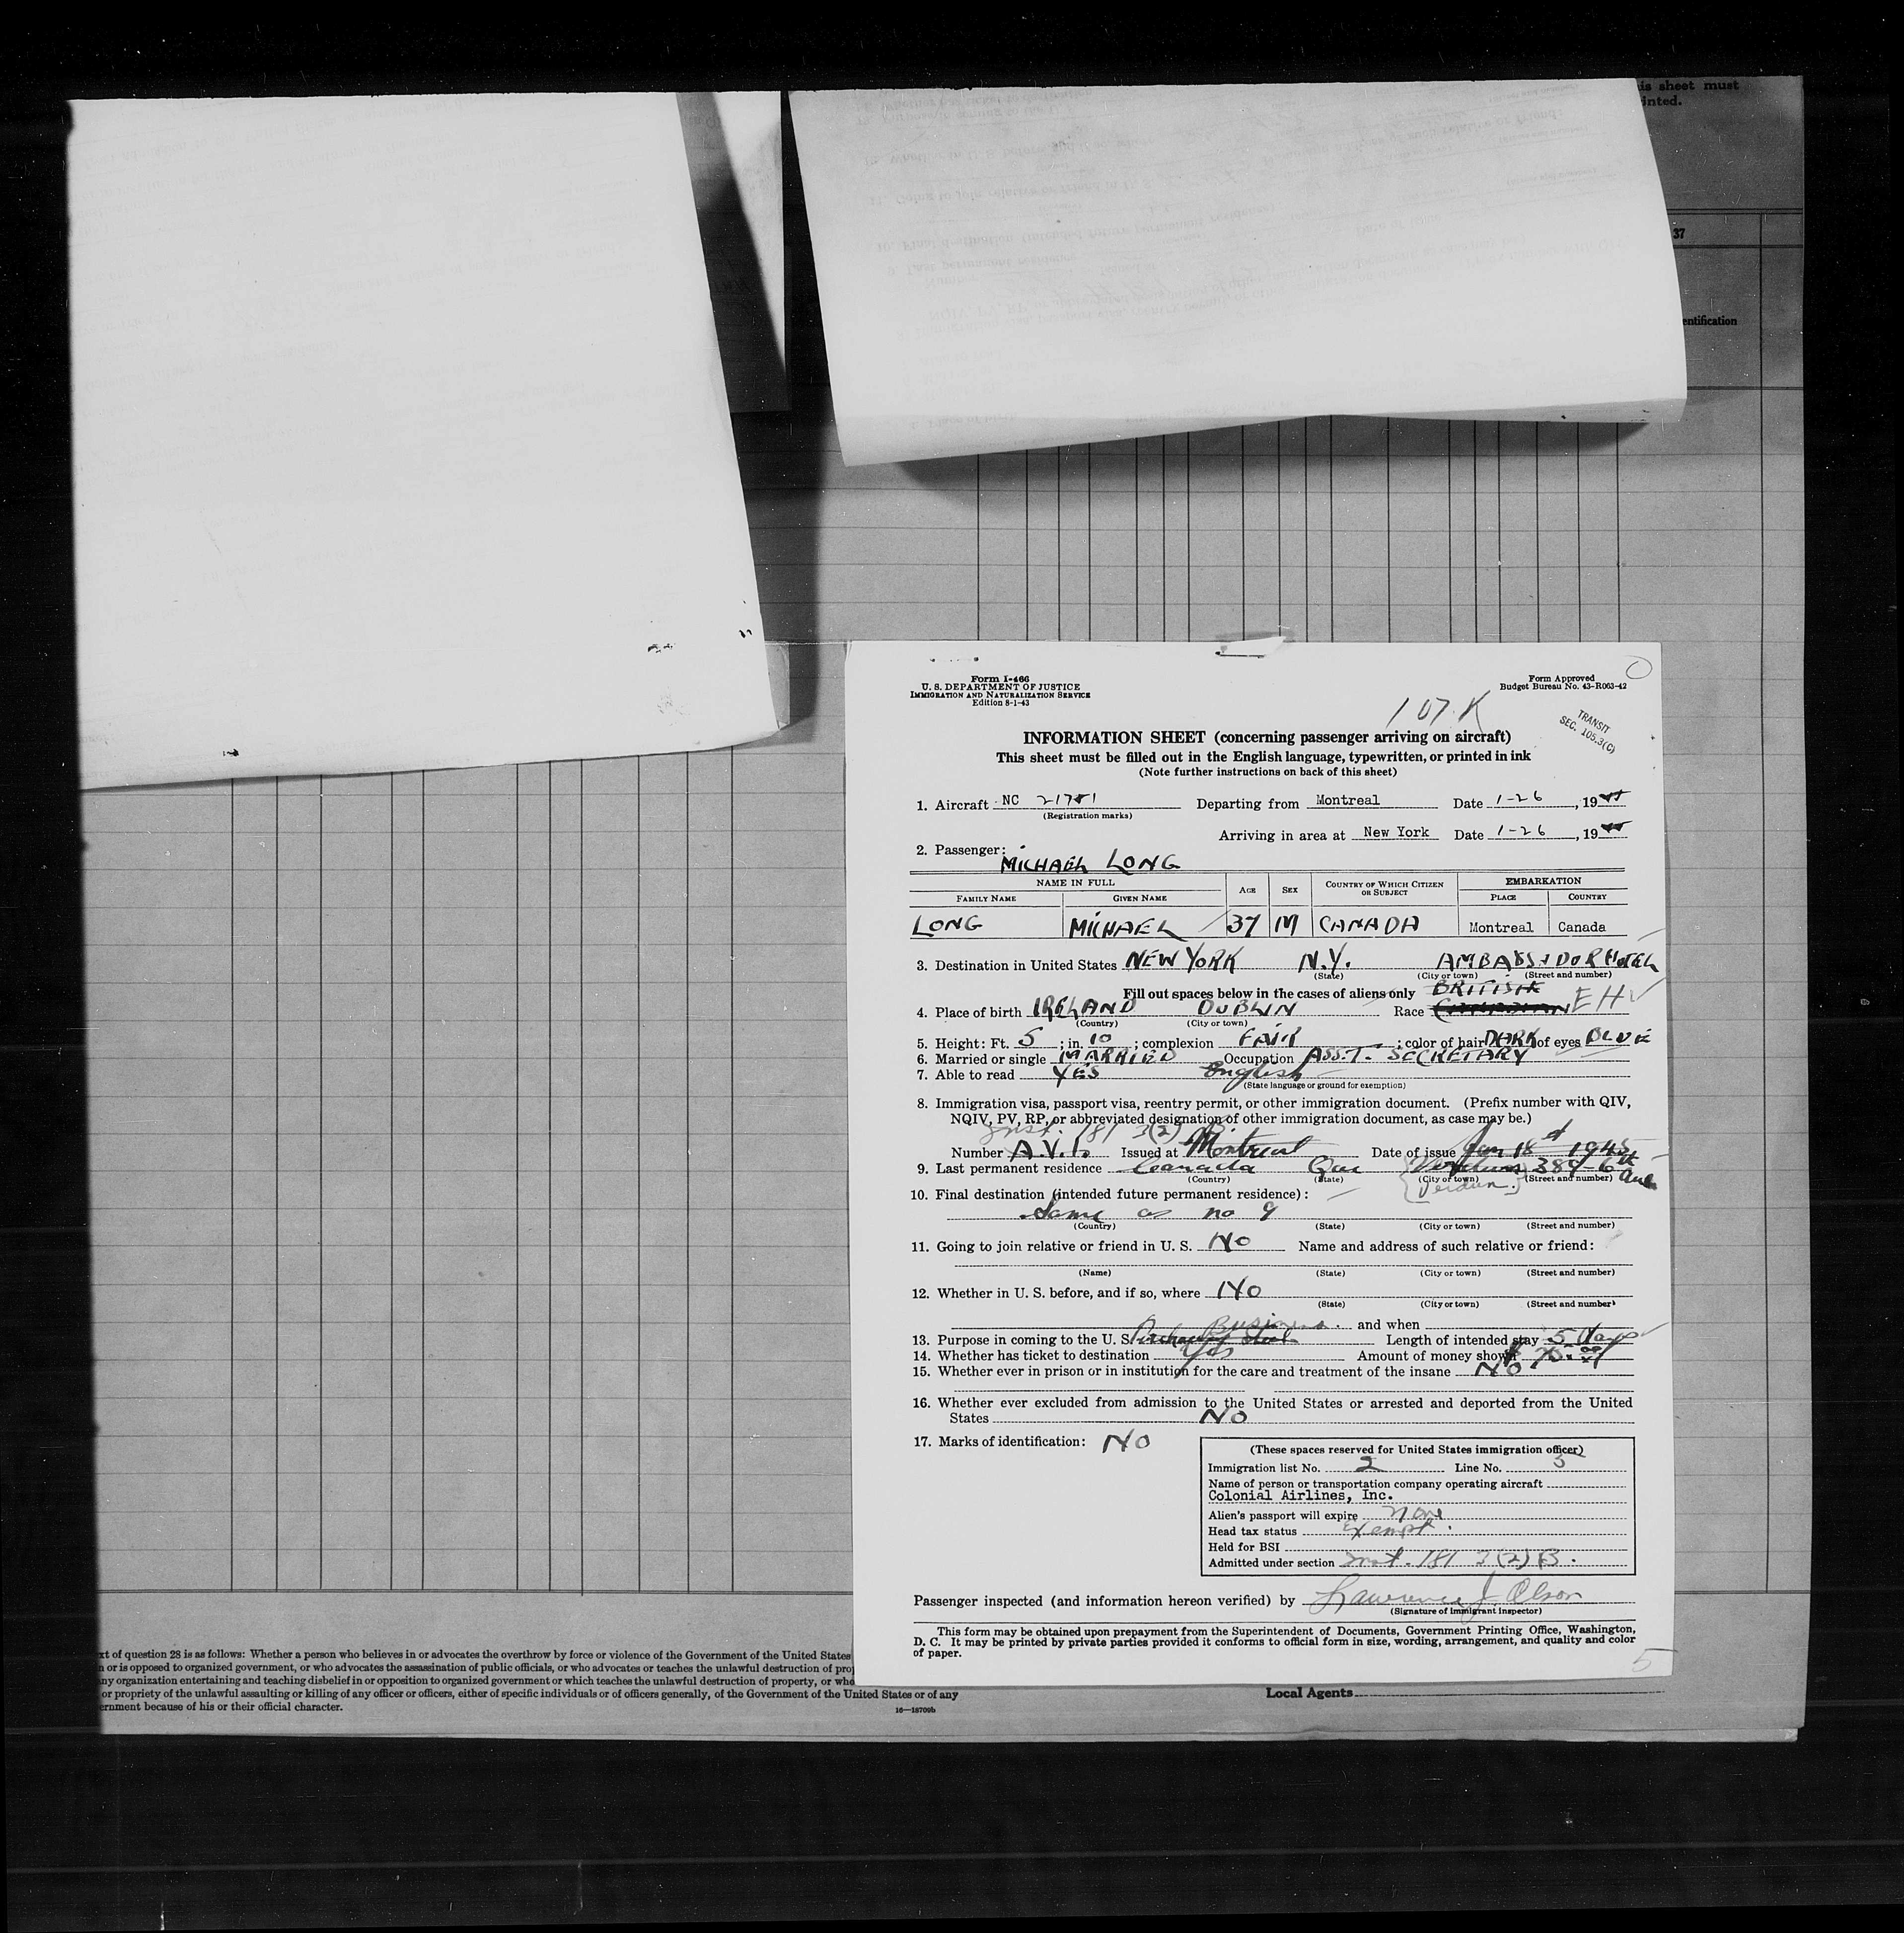 is sheet must
inted.
37
entification
Form I-466
U. S. DEPARTMENT OF JUSTICE
IMMIGRATION AND NATURALIZATION SERVICE
Edition 8-1-43
Form Approved
Budget Bureau No. 43-R063-42
107 K
TRANSIT
SEC. 105.3(C)
INFORMATION SHEET (concerning passenger arriving on aircraft)
This sheet must be filled out in the English language, typewritten, or printed in ink
(Note further instructions on back of this sheet)
1. Aircraft NC Departing from Montreal Date 1-26, 19
(Registration marks)
Arriving in area at New York Date 1-26, 19
2. Passenger: MICHAEL LONG
NAME IN FULL AGE SEX COUNTRY OF WHICH CITIZEN OR SUBJECT EMBARKATION
FAMILY NAME GIVEN NAME PLACE COUNTRY
LONG MICHAEL 37 M CANADA Montreal Canada
3. Destination in United States NEW YORK N.Y. HOTEL
(State) (City or town) (Street and number)
Fill out spaces below in the cases of aliens only BRITISH
4. Place of birth IRELAND DUBLIN Race EH
(Country) (City or town)
5. Height: Ft. 5; in. 10; complexion FAIR; color of hair DARK of eyes BLUE
6. Married or single MARRIED Occupation ASST. SECRETARY
7. Able to read YES English
(State language or ground for exemption)
8. Immigration visa, passport visa, reentry permit, or other immigration document. (Prefix number with QIV,
NQIV, PV, RP, or abbreviated designation of other immigration document, as case may be.)
Inst. 181 3(2) B
Number Issued at Montreal Date of issue Jan 18 1945
9. Last permanent residence Canada Que Verdun 389-6th Ave
(Country) (State) (City or town) (Street and number)
Verdun.
10. Final destination (intended future permanent residence):
Same as no 9
(Country) (State) (City or town) (Street and number)
11. Going to join relative or friend in U. S. NO Name and address of such relative or friend:
(Name) (State) (City or town) (Street and number)
12. Whether in U. S. before, and if so, where NO
(State) (City or town) (Street and number)
Business. and when
13. Purpose in coming to the U. S. Length of intended stay 5 days
14. Whether has ticket to destination Yes Amount of money shown
15. Whether ever in prison or in institution for the care and treatment of the insane NO
16. Whether ever excluded from admission to the United States or arrested and deported from the United
States NO
17. Marks of identification: NO
(These spaces reserved for United States immigration officer)
Immigration list No. 2 Line No. 5
Name of person or transportation company operating aircraft
Colonial Airlines, Inc.
Alien's passport will expire none
Head tax status Exempt.
Held for BSI
Admitted under section Inst. 181 3(2) B.
Passenger inspected (and information hereon verified) by Lawrence J Olson
(Signature of immigrant inspector)
This form may be obtained upon prepayment from the Superintendent of Documents, Government Printing Office, Washington,
D. C. It may be printed by private parties provided it conforms to official form in size, wording, arrangement, and quality and color
of paper.
5
xt of question 28 is as follows: Whether a person who believes in or advocates the overthrow by force or violence of the Government of the United States
n or is opposed to organized government, or who advocates the assassination of public officials, or who advocates or teaches the unlawful destruction of prop
ny organization entertaining and teaching disbelief in or opposition to organized government or which teaches the unlawful destruction of property, or who
or propriety of the unlawful assaulting or killing of any officer or officers, either of specific individuals or of officers generally, of the Government of the United States or of any
ernment because of his or their official character.
16—18709b
Local Agents